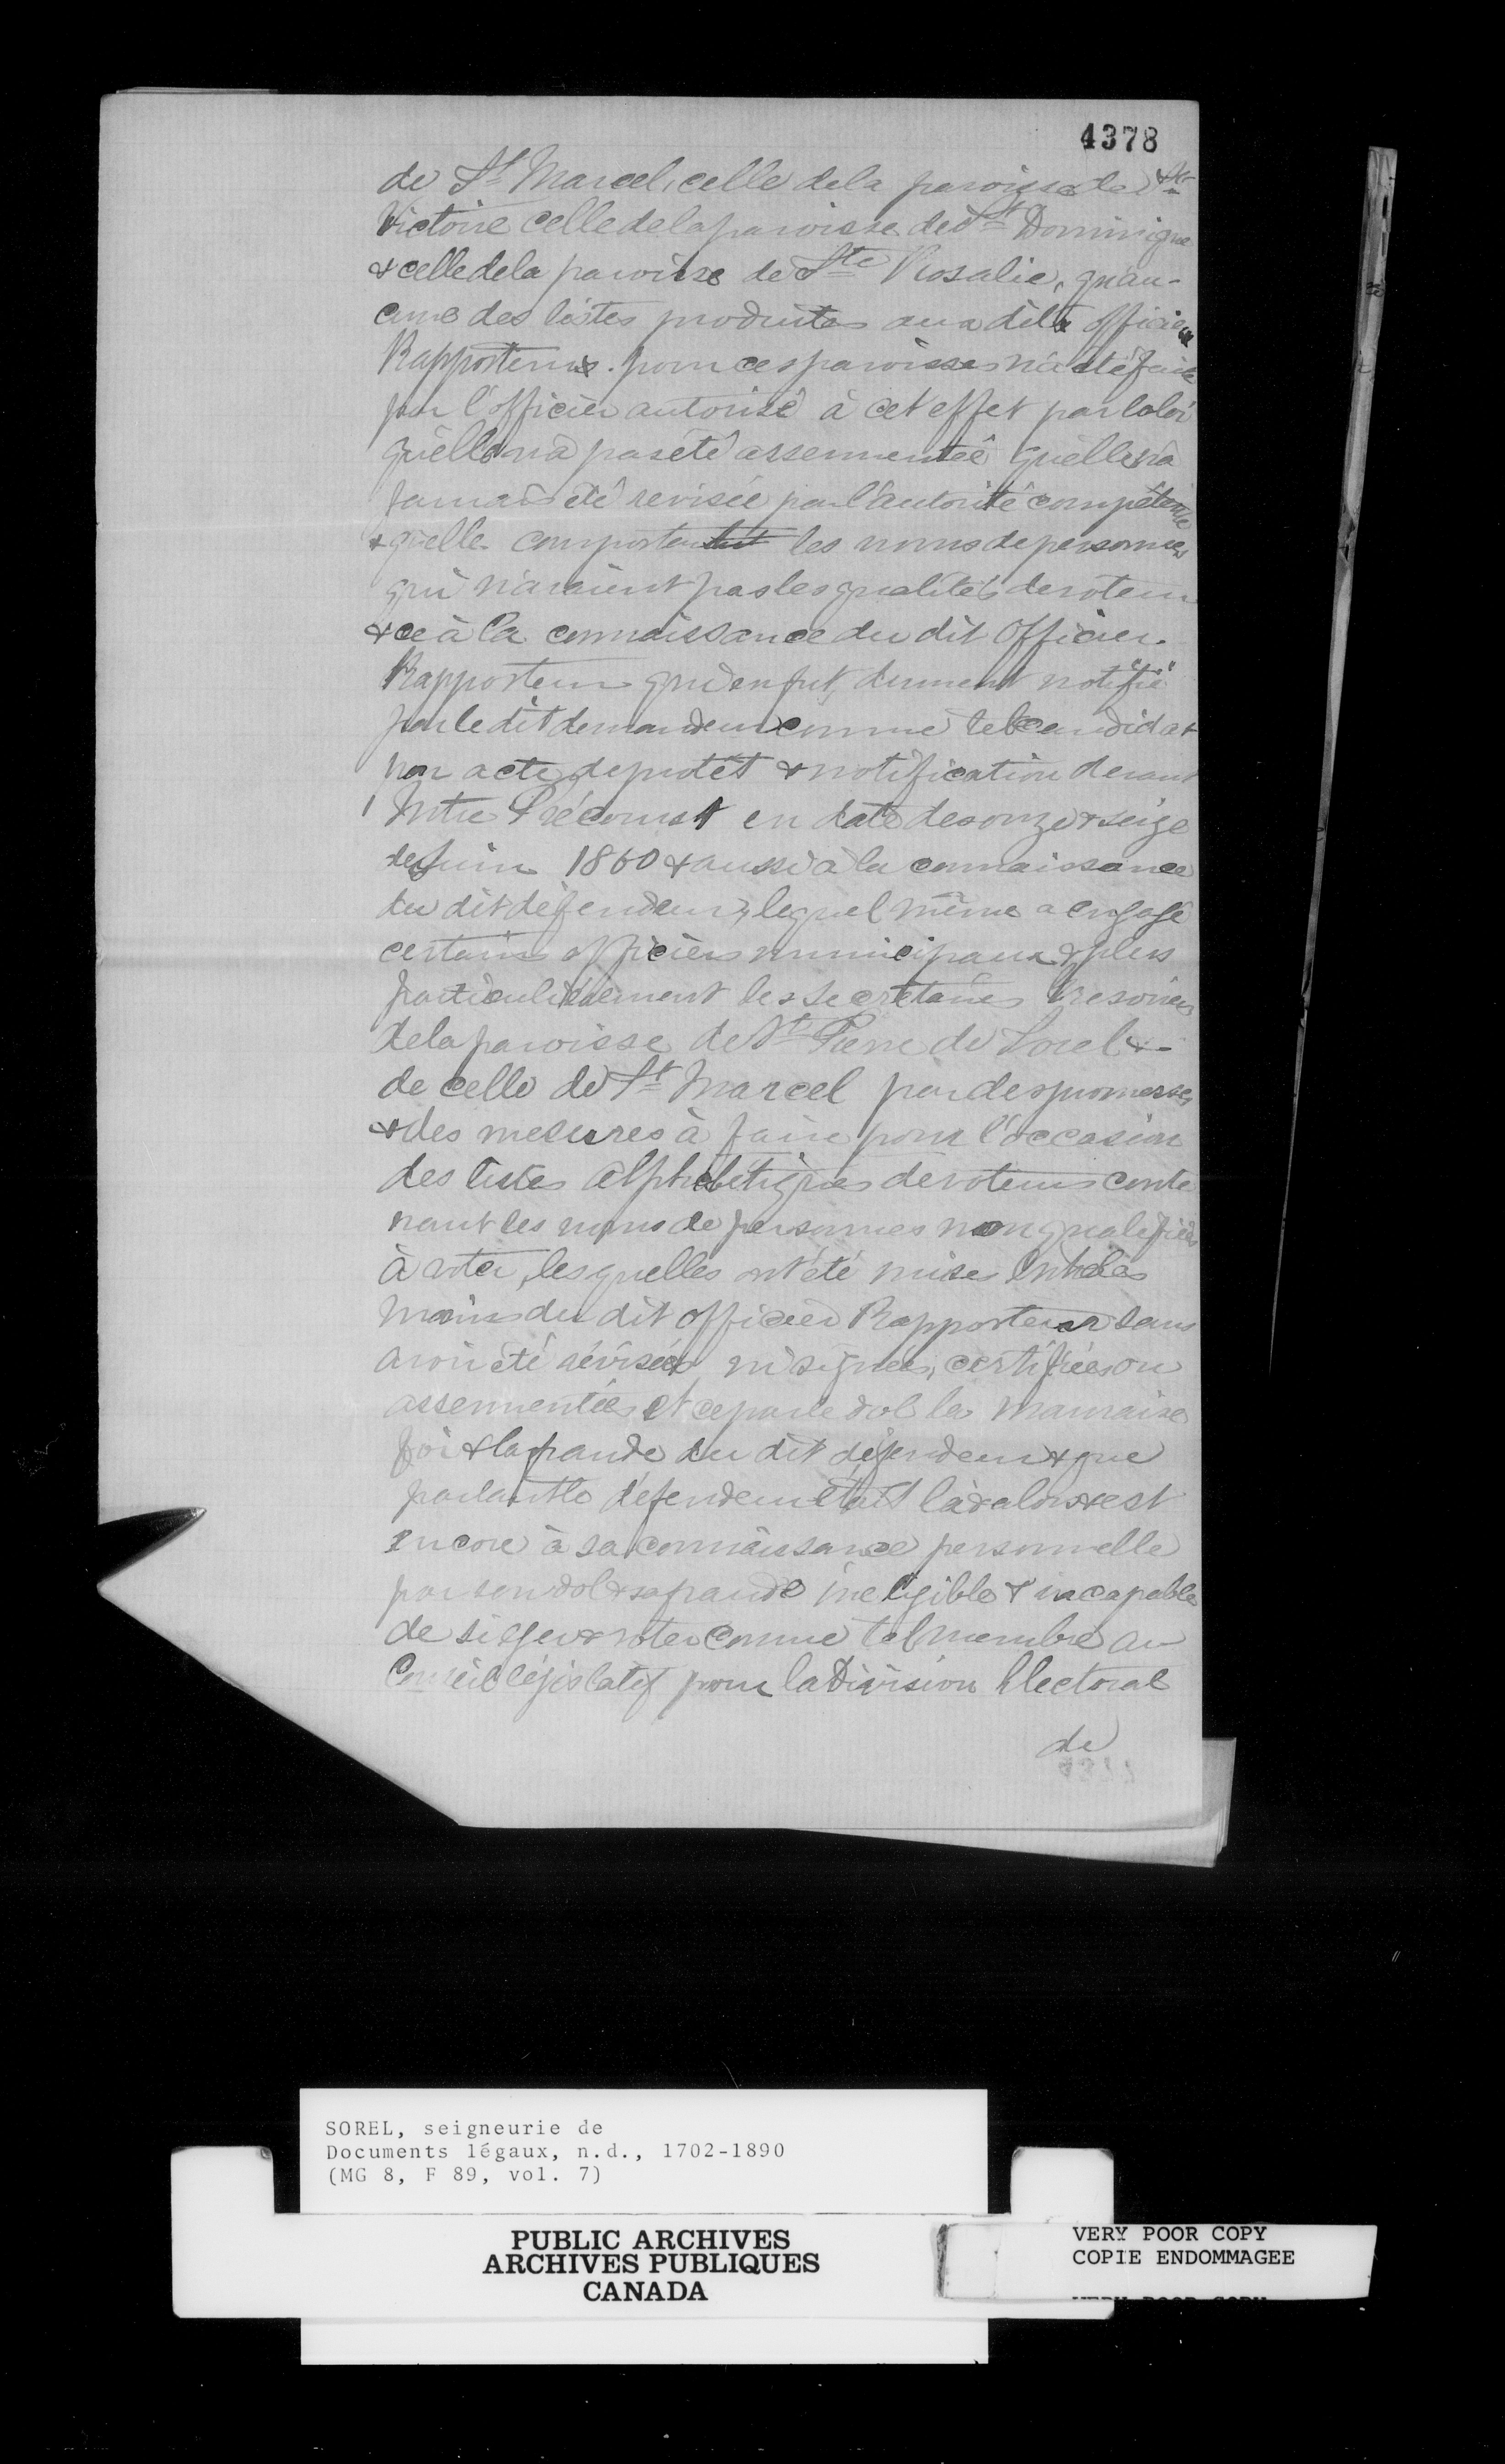 4378
de St Marcel, celle de la paroisse de Ste
Victoire celle de la paroisse de St Dominique
& celle de la paroisse de Ste Rosalie, qu'au-
cune des listes produites aux dits officiers
Rapporteurs pour ces paroisses n'a été faite
par l'officier autorisé à cet effet par la loi
qu'elle n'a pas été assermentée qu'elle n'a
jamais été revisée par l'autorité compétente
& qu'elle comportent les noms de personnes
qui n'avaient pas les qualités de voteur
& ce à la connaissance du dit Officier
Rapporteur qui en fut dument notifié
par le dit demandeur comme tel candidat
par acte de protêt & notification devant
Mtre Précourt en date des onze & seize
de Juin 1860 & aussi à la connaissance
du dit défendeur, lequel même a engagé
certains officiers municipaux & plus
particulièrement les secretaires Tresoriers
de la paroisse de St Pierre de Sorel &
de celle de St Marcel par des promesses
& des mesures à faire pour l'occasion
des listes alphabétiques de voteurs conte
nant les noms de personnes non qualifiées
à voter, lesquelles ont été mises entre les
mains du dit officier Rapporteur sans
avoir été révisées ni signées, certifiées ou
assermentées et ce par le dol la mauvaise
foi & la fraude du dit défendeur & que
partant le défendeur était là & alors & est
encore à sa connaissance personnelle
par son dol & sa fraude ineligible & incapable
de siéger & voter comme tel membre au
Conseil législatif pour la Division Electoral
de
SOREL, seigneurie de
Documents légaux, n.d., 1702-1890
(MG 8, F 89, vol. 7)
PUBLIC ARCHIVES
ARCHIVES PUBLIQUES
CANADA
VERY POOR COPY
COPIE ENDOMMAGEE
VERY POOR COPY